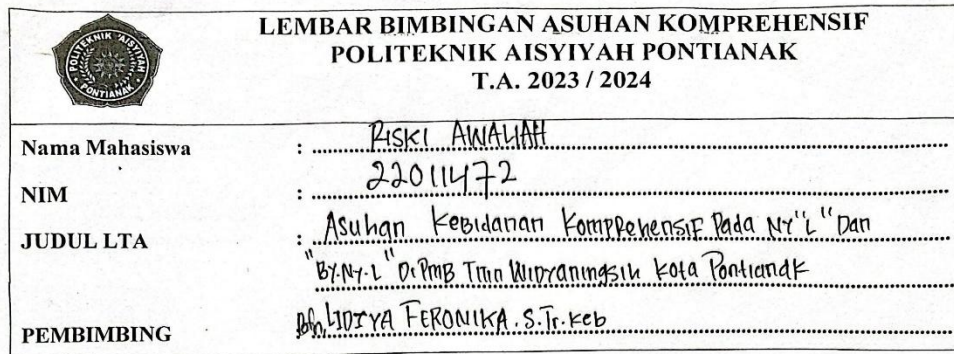 POLITEKNIK 'AISYIYAH
PONTIANAK
LEMBAR BIMBINGAN ASUHAN KOMPREHENSIF
POLITEKNIK AISYIYAH PONTIANAK
T.A. 2023 / 2024
Nama Mahasiswa : RISKI AWALIAH
NIM : 22011472
JUDUL LTA : Asuhan Kebidanan Komprehensif Pada Ny"L" Dan
"By.Ny.L" Di PMB Titin Widyaningsih Kota Pontianak
PEMBIMBING Bdn, LIDIYA FERONIKA. S.Tr.Keb